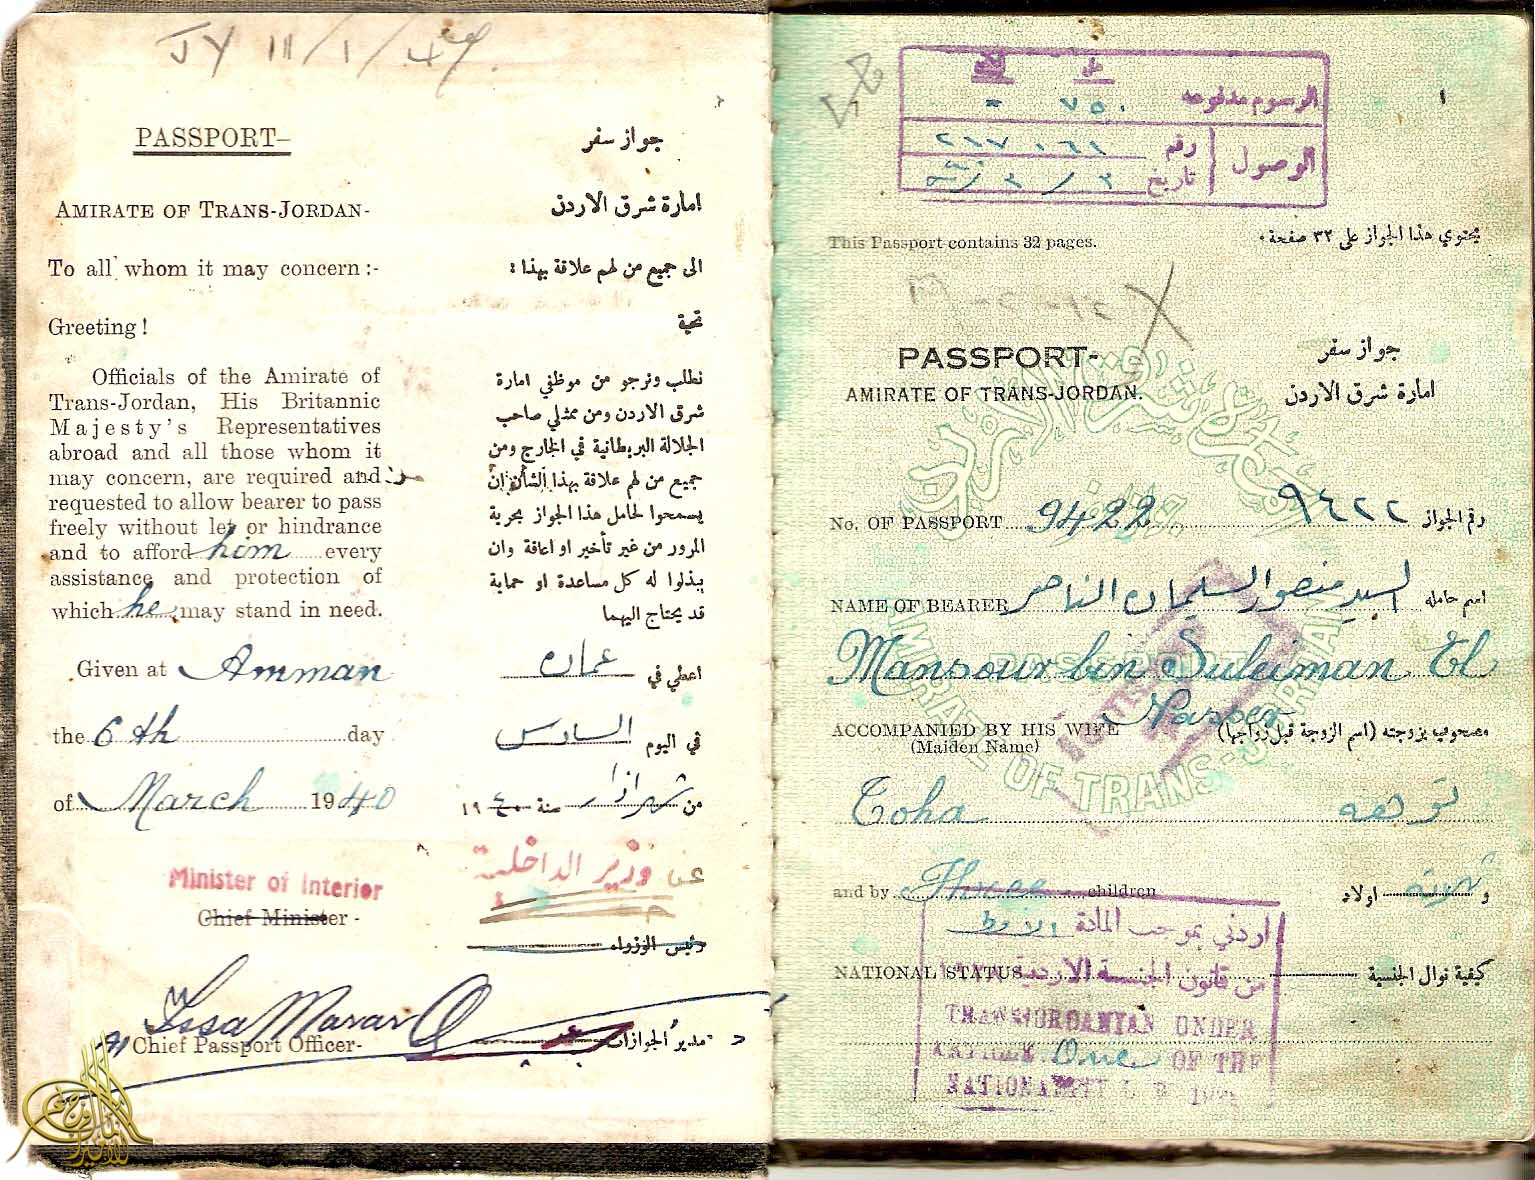 PASSPORT-
جواز سفر
AMIRATE OF TRANS-JORDAN-
امارة شرق الاردن
To all whom it may concern :-
الى جميع من لهم علاقة بهذا :
Greeting!
تحية
Officials of the Amirate of
Trans-Jordan, His Britannic
Majesty's Representatives
abroad and all those whom it
may concern, are required and
requested to allow bearer to pass
freely without let or hindrance
and to afford him every
assistance and protection of
which he may stand in need.
نطلب ونرجو من موظفي امارة
شرق الاردن ومن ممثلي صاحب
الجلالة البريطانية في الخارج ومن
جميع من لهم علاقة بهذا الشأن ان
يسمحوا لحامل هذا الجواز بحرية
المرور من غير تأخير او اعاقة وان
يبذلوا له كل مساعدة او حماية
قد يحتاج اليهما
Given at Amman
اعطي في عمان
the 6th day
في اليوم السادس
of March 1940
من شهر اذار سنة ١٩٤٠
Minister of Interior
عن وزير الداخلية
Chief Minister -
رئيس الوزراء
Issa Marar
Chief Passport Officer-
مدير الجوازات
١
الرسوم مدفوعه ٧٥٠ -
الوصول
رقم
تاريخ
This Passport contains 32 pages.
يحتوي هذا الجواز على ٣٢ صفحة
PASSPORT-
جواز سفر
AMIRATE OF TRANS-JORDAN.
امارة شرق الاردن
No. OF PASSPORT 9422
٩٤٢٢ رقم الجواز
NAME OF BEARER
اسم حامله السيد منصور السليمان الناصر
Mansour bin Suleiman El
Nasser
ACCOMPANIED BY HIS WIFE
(Maiden Name)
مصحوب بزوجته (اسم الزوجة قبل زواجها)
Toha
and by Three children
و ثلاثة اولاد
NATIONAL STATUS
كيفية نوال الجنسية
اردني بموجب المادة الاولى
من قانون الجنسية الاردنية
TRANSJORDANIAN UNDER
ARTICLE One OF THE
AMIRATE OF TRANS-JORDAN
PASSPORT